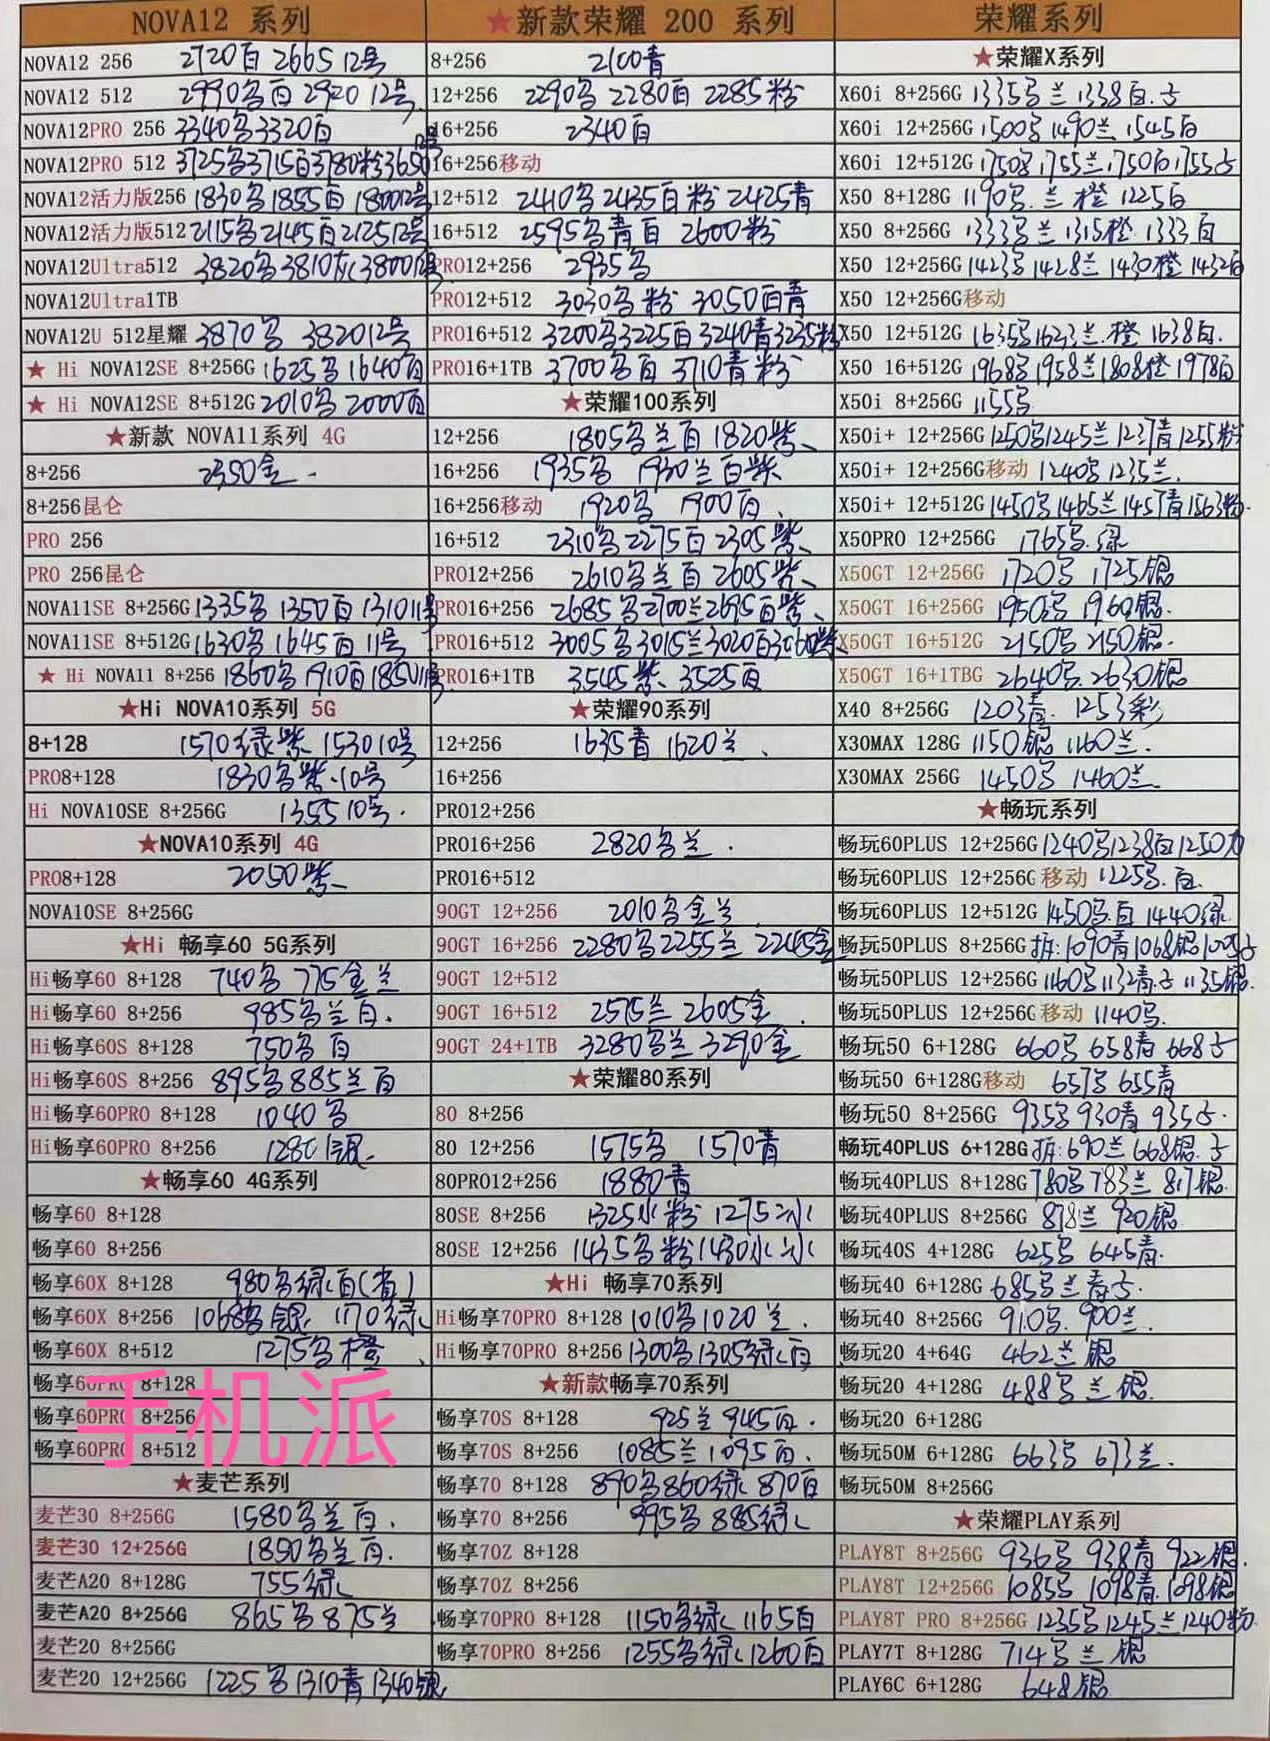 NOVA12 系列
NOVA12 256 2720白 2665 12号
NOVA12 512 2990乌白 2920 12号
NOVA12PRO 256 3340乌3320白
NOVA12PRO 512 3725乌3715白3780粉3650
NOVA12活力版256 1830乌1855白 1800 12号
NOVA12活力版512 2115乌2145白2125 12号
NOVA12Ultra512 3820乌3810灰3800
NOVA12Ultra1TB
NOVA12U 512星耀 3870乌 3820 12号
★ Hi NOVA12SE 8+256G 1625乌 1640白
★ Hi NOVA12SE 8+512G 2010乌 2000白
★新款 NOVA11系列 4G
8+256 2350金
8+256昆仑
PRO 256
PRO 256昆仑
NOVA11SE 8+256G 1335乌 1350白 1310 11号
NOVA11SE 8+512G 1630乌 1645白 11号
★ Hi NOVA11 8+256 1860乌 1910白 1850 11号
★Hi NOVA10系列 5G
8+128 1570绿紫 1530 10号
PRO8+128 1830乌紫.10号
Hi NOVA10SE 8+256G 1355 10号.
★NOVA10系列 4G
PRO8+128 2050紫
NOVA10SE 8+256G
★Hi 畅享60 5G系列
Hi畅享60 8+128 740乌 775金兰
Hi畅享60 8+256 985乌兰白.
Hi畅享60S 8+128 750乌 白
Hi畅享60S 8+256 895乌885兰白
Hi畅享60PRO 8+128 1040乌
Hi畅享60PRO 8+256 1280银
★畅享60 4G系列
畅享60 8+128
畅享60 8+256
畅享60X 8+128 980乌绿白(省)
畅享60X 8+256 1068乌银 1170绿
畅享60X 8+512 1275乌橙
畅享60PRO 8+128
畅享60PRO 8+256
畅享60PRO 8+512
手机派
★麦芒系列
麦芒30 8+256G 1580乌兰白.
麦芒30 12+256G 1850乌兰白.
麦芒A20 8+128G 755绿
麦芒A20 8+256G 865乌875兰
麦芒20 8+256G
麦芒20 12+256G 1225乌1310青1340银
★新款荣耀 200 系列
8+256 2100青
12+256 2290乌 2280白 2285粉
16+256 2340白
16+256移动
12+512 2410乌2435白粉2425青
16+512 2595乌青白 2600粉
PRO12+256 2935乌
PRO12+512 3030乌粉 3050白青
PRO16+512 3200乌3225白3240青3235粉
PRO16+1TB 3700乌白 3710青粉
★荣耀100系列
12+256 1805乌兰白1820紫
16+256 1935乌 1930兰白紫
16+256移动 1920乌 1900白
16+512 2310乌2275白2305紫
PRO12+256 2610乌兰白2605紫
PRO16+256 2685乌2700兰2695白紫
PRO16+512 3005乌3015兰3020白3060紫
PRO16+1TB 3545紫 3525白
★荣耀90系列
12+256 1635青 1620兰
16+256
PRO12+256
PRO16+256 2820乌兰.
PRO16+512
90GT 12+256 2010乌金兰
90GT 16+256 2280乌2255兰 2245金
90GT 12+512
90GT 16+512 2575兰 2605金
90GT 24+1TB 3280乌兰 3290金
★荣耀80系列
80 8+256
80 12+256 1575乌 1570青
80PRO12+256 1880青
80SE 8+256 1325水粉 1275冰
80SE 12+256 1435乌粉1430水冰
★Hi 畅享70系列
Hi畅享70PRO 8+128 1010乌1020兰.
Hi畅享70PRO 8+256 1300乌1305绿白
★新款畅享70系列
畅享70S 8+128 925兰945白.
畅享70S 8+256 1085兰1095白.
畅享70 8+128 890乌860绿 870白
畅享70 8+256 995乌885绿
畅享70Z 8+128
畅享70Z 8+256
畅享70PRO 8+128 1150乌绿 1165白
畅享70PRO 8+256 1255乌绿 1260白
荣耀系列
★荣耀X系列
X60i 8+256G 1335乌兰1338白.
X60i 12+256G 1500乌1490兰.1545白
X60i 12+512G 1750乌1755兰.1750白1755
X50 8+128G 1190乌.兰 橙 1225白
X50 8+256G 1333乌兰1315橙 1333白
X50 12+256G 1423乌1428兰1430橙1432白
X50 12+256G移动
X50 12+512G 1635乌1633兰.橙1638白.
X50 16+512G 1968乌1958兰1808橙1978白
X50i 8+256G 1155乌
X50i+ 12+256G 1250乌1245兰1237青1255粉
X50i+ 12+256G移动 1240乌1235兰.
X50i+ 12+512G 1450乌1465兰1457青1563粉.
X50PRO 12+256G 1765乌.绿
X50GT 12+256G 1720乌 1725银
X50GT 16+256G 1950乌 1960银.
X50GT 16+512G 2150乌 2150银.
X50GT 16+1TBG 2640乌.2630银
X40 8+256G 1203青. 1253彩
X30MAX 128G 1150银 1160兰.
X30MAX 256G 1450乌 1460兰.
★畅玩系列
畅玩60PLUS 12+256G 1240乌1238白1250
畅玩60PLUS 12+256G移动 1225乌.白
畅玩60PLUS 12+512G 1450乌.白1440绿
畅玩50PLUS 8+256G 拆:1090青1068银
畅玩50PLUS 12+256G 1160乌1132青 1135银.
畅玩50PLUS 12+256G移动 1140乌.
畅玩50 6+128G 660乌 658青 668
畅玩50 6+128G移动 657乌 655青
畅玩50 8+256G 935乌 930青 935
畅玩40PLUS 6+128G 拆:690兰668银.
畅玩40PLUS 8+128G 780乌783兰 817银.
畅玩40PLUS 8+256G 878兰 920银
畅玩40S 4+128G 625乌 645青.
畅玩40 6+128G 685乌兰青
畅玩40 8+256G 910乌.900兰.
畅玩20 4+64G 462兰银
畅玩20 4+128G 488乌兰银.
畅玩20 6+128G
畅玩50M 6+128G 663乌 673兰.
畅玩50M 8+256G
★荣耀PLAY系列
PLAY8T 8+256G 936乌 938青 922银.
PLAY8T 12+256G 1085乌 1098青.1098银
PLAY8T PRO 8+256G 1235乌1245兰1240粉.
PLAY7T 8+128G 714乌兰银
PLAY6C 6+128G 648银